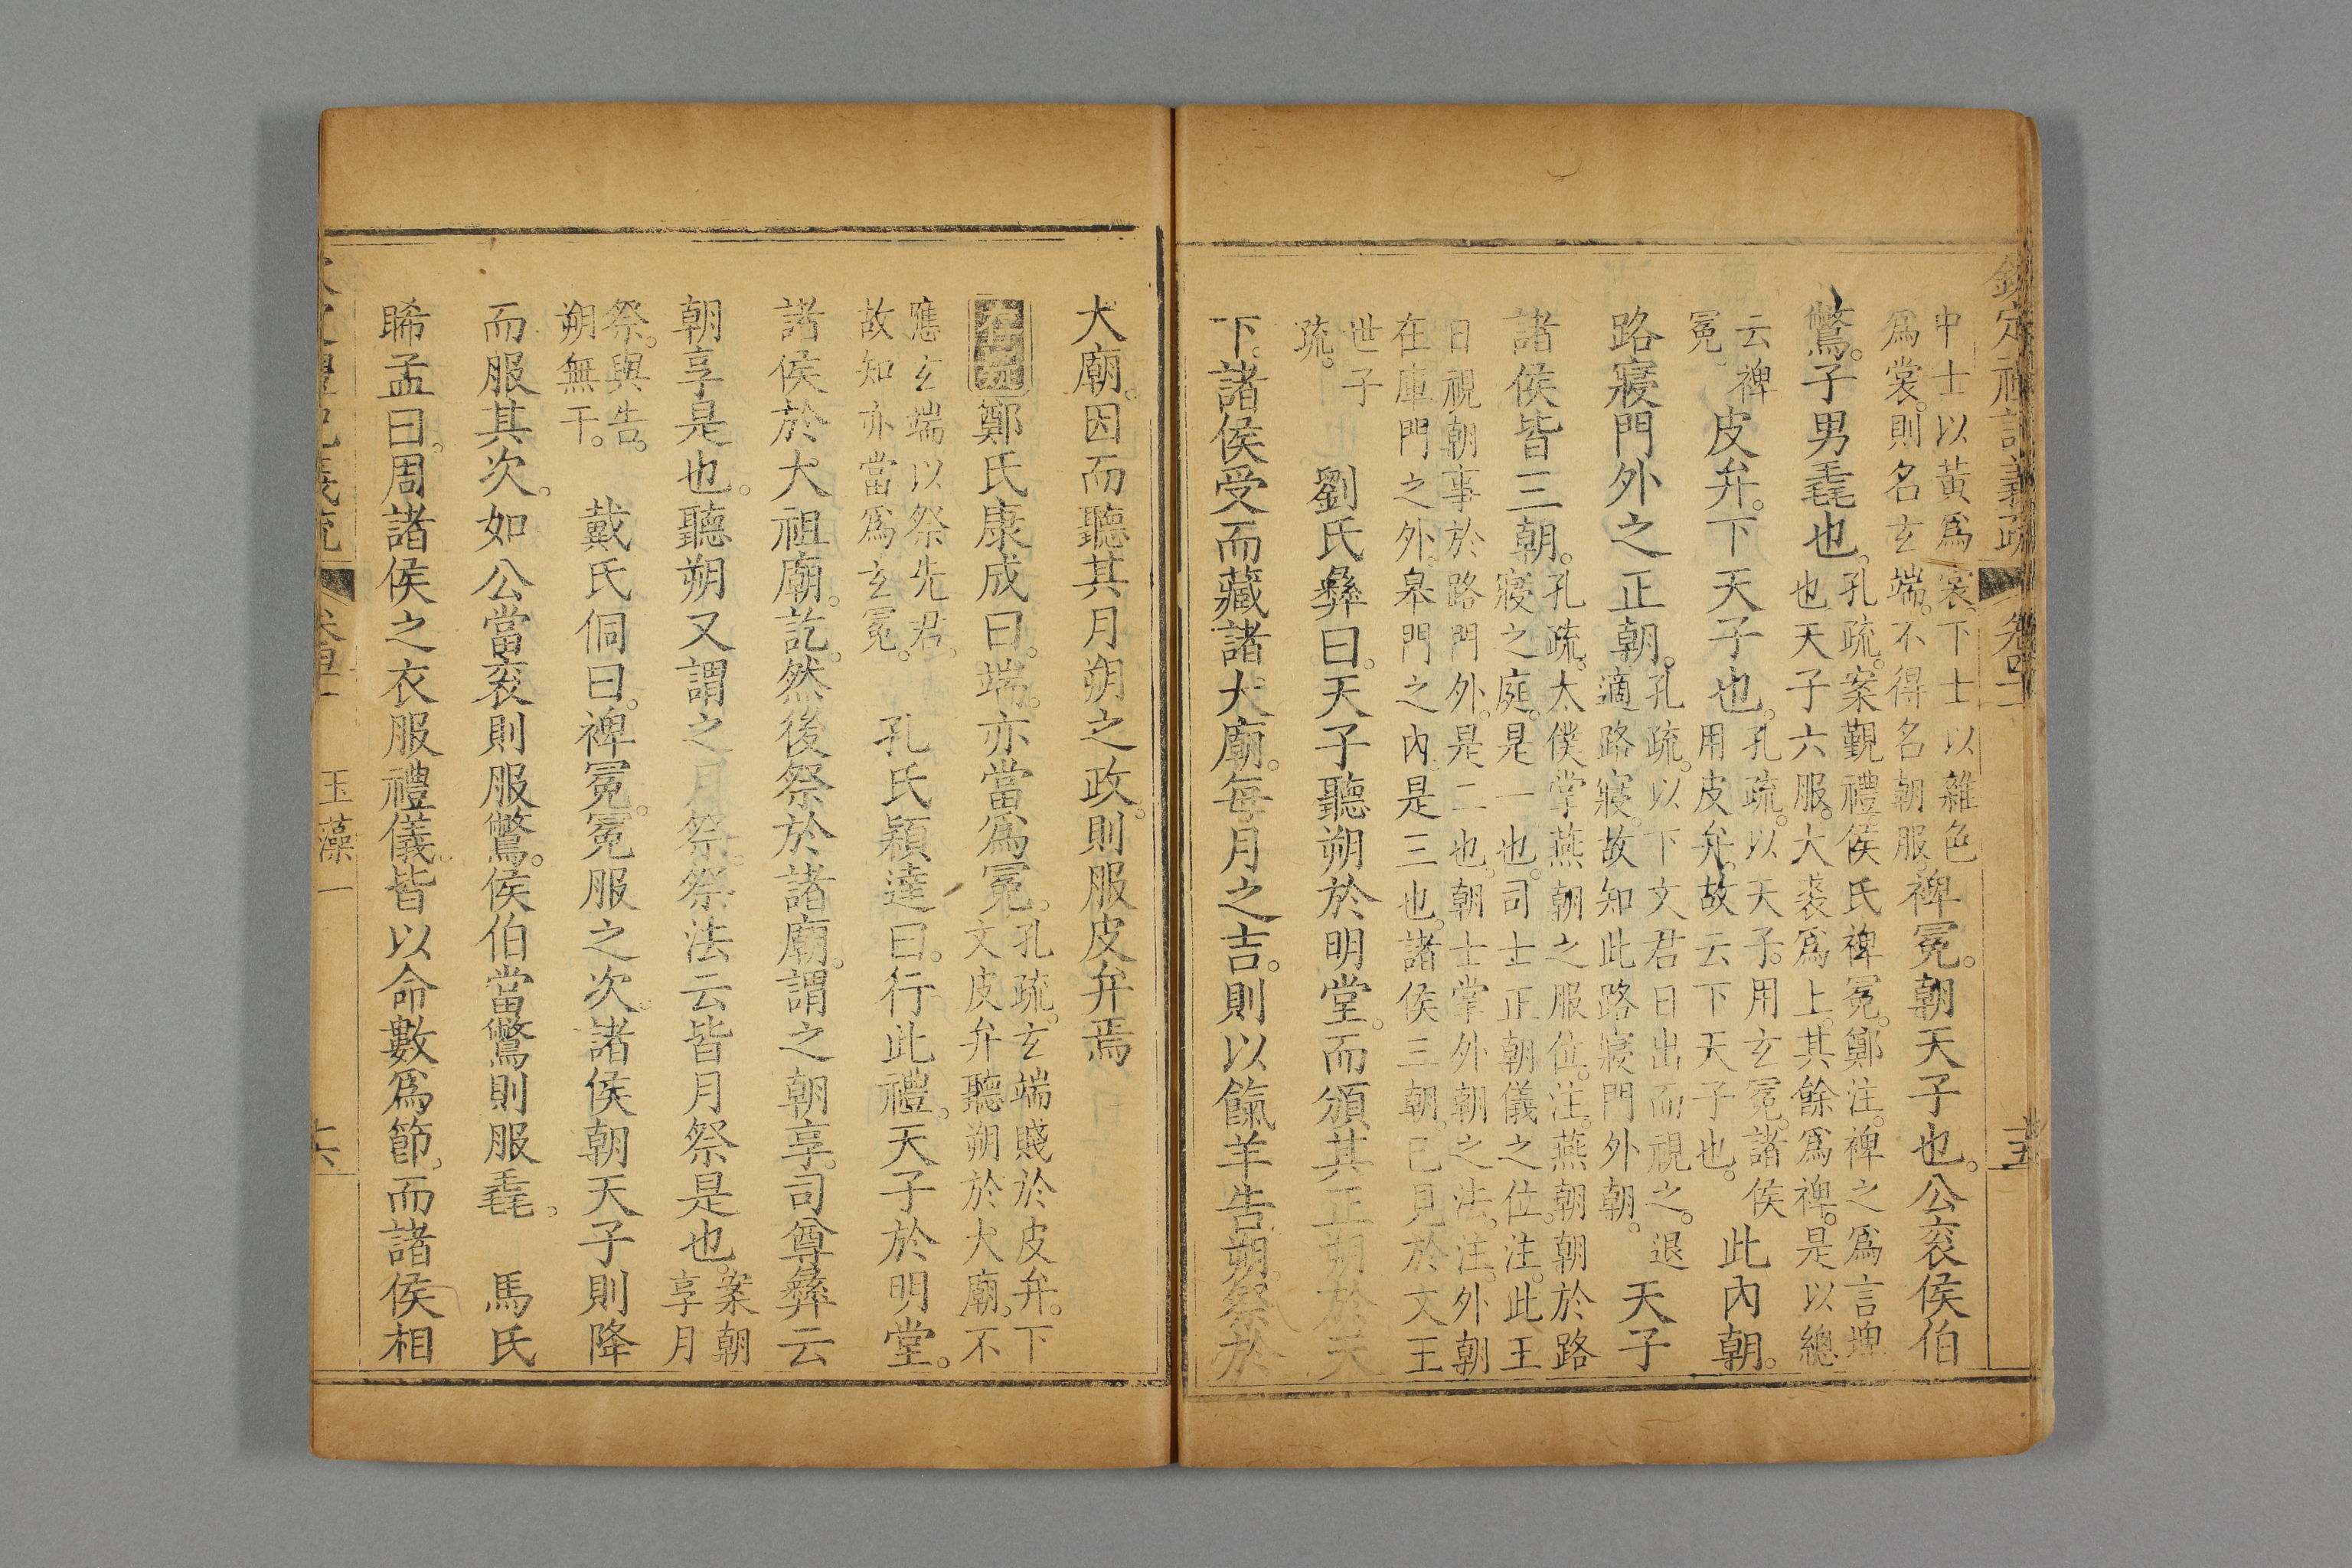 欽定禮記義疏 卷四十一 十五
中士以黃爲裳。下士以雜色爲裳。則名玄端。不得名朝服。裨冕。朝天子也。公衮侯伯
鷩。子男毳也。孔疏。案覲禮。侯氏裨冕。鄭注。裨之爲言埤也。天子六服。大裘爲上。其餘爲裨。是以總
云裨冕。 皮弁。下天子也。孔疏。以天子。用玄冕。諸侯用皮弁。故云下天子也。 此內朝。
路寢門外之正朝。孔疏。以下文君日出而視之。退適路寢。故知此路寢門外朝。 天子
諸侯皆三朝。孔疏。太僕掌燕朝之服位。注。燕朝朝於路寢之庭。是一也。司士正朝儀之位。注。此王
日視朝事於路門外。是二也。朝士掌外朝之法。注。外朝在庫門之外。皋門之內。是三也。諸侯三朝。已見於文王
世子疏。 劉氏彝曰。天子聽朔於明堂。而頒其正朔於天
下。諸侯受而藏諸大廟。每月之吉。則以餼羊告朔。祭於
大廟。因而聽其月朔之政。則服皮弁焉
鄭氏康成曰。端。亦當爲冕。孔疏。玄端賤於皮弁。下文皮弁聽朔於大廟。不
應玄端以祭先君。故知亦當爲玄冕。 孔氏穎達曰。行此禮。天子於明堂。
諸侯於大祖廟。訖。然後祭於諸廟。謂之朝享。司尊彝云
朝享是也。聽朔又謂之月祭。祭法云皆月祭是也。案朝享月
祭。與告朔無干。 戴氏侗曰。裨冕。冕服之次。諸侯朝天子則降
而服其次。如公當衮則服鷩。侯伯當鷩則服毳。 馬氏
睎孟曰。周諸侯之衣服禮儀。皆以命數爲節。而諸侯相
玉藻一